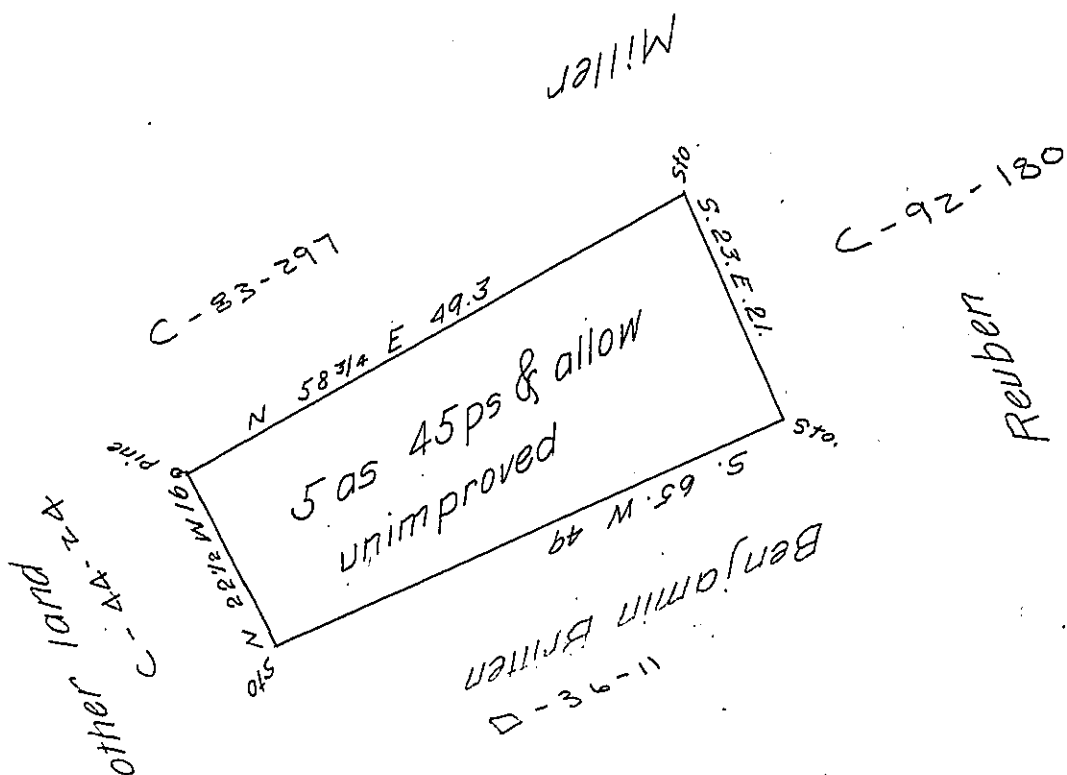 Miller
C-83-297
C-92-180
Sto.
N 58 3/4 E 49.3
S. 23. E. 21.
Reuben
Pine
5 as 45 ps & allow
unimproved
Sto.
N 22 1/2 W 16
S. 65. W 49
Benjamin Britten
D-36-11
Sto
other land
C-44-24